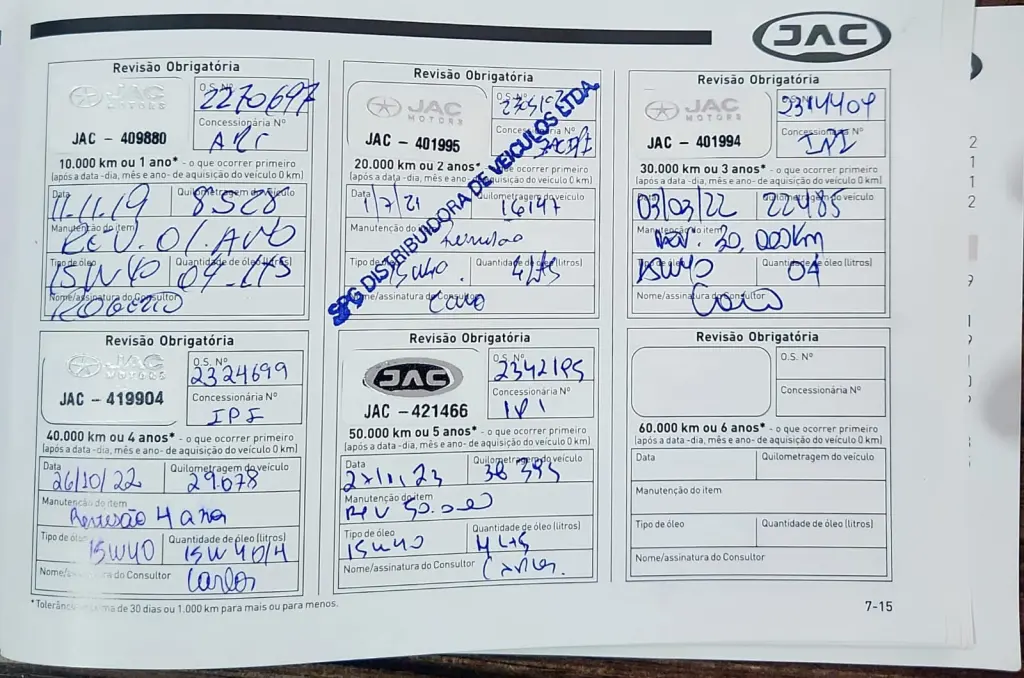 JAC
Revisão Obrigatória
JAC MOTORS
O.S. Nº
2270697
JAC - 409880
Concessionária Nº
10.000 km ou 1 ano* - o que ocorrer primeiro
(após a data - dia, mês e ano - de aquisição do veículo 0 km)
Data
Quilometragem do veículo
11.11.19
8528
Manutenção do item
REV. 01. ANO
Tipo de óleo
Quantidade de óleo (litros)
15W40
04 LTS
Nome/assinatura do Consultor
ROGERIO
Revisão Obrigatória
JAC MOTORS
O.S. Nº
JAC - 401995
Concessionária Nº
20.000 km ou 2 anos* - o que ocorrer primeiro
(após a data - dia, mês e ano - de aquisição do veículo 0 km)
Data
Quilometragem do veículo
1/7/21
16147
Manutenção do item
Revisão
Tipo de óleo
Quantidade de óleo (litros)
15W40
4 LTS
Nome/assinatura do Consultor
SPG DISTRIBUIDORA DE VEICULOS LTDA.
Revisão Obrigatória
JAC MOTORS
O.S. Nº
2314404
JAC - 401994
Concessionária Nº
IPI
30.000 km ou 3 anos* - o que ocorrer primeiro
(após a data - dia, mês e ano - de aquisição do veículo 0 km)
Data
Quilometragem do veículo
03/03/22
22485
Manutenção do item
Rev. 30.000Km
Tipo de óleo
Quantidade de óleo (litros)
15W40
04
Nome/assinatura do Consultor
Revisão Obrigatória
JAC MOTORS
O.S. Nº
2324699
JAC - 419904
Concessionária Nº
IPI
40.000 km ou 4 anos* - o que ocorrer primeiro
(após a data - dia, mês e ano - de aquisição do veículo 0 km)
Data
Quilometragem do veículo
26/10/22
29.078
Manutenção do item
Revisão 4 ano
Tipo de óleo
Quantidade de óleo (litros)
15W40
15W40/4
Nome/assinatura do Consultor
Carlos
Revisão Obrigatória
JAC
O.S. Nº
2342195
JAC - 421466
Concessionária Nº
IPI
50.000 km ou 5 anos* - o que ocorrer primeiro
(após a data - dia, mês e ano - de aquisição do veículo 0 km)
Data
Quilometragem do veículo
38395
Manutenção do item
REV 50.000
Tipo de óleo
Quantidade de óleo (litros)
15W40
4 LTS
Nome/assinatura do Consultor
Carlos.
Revisão Obrigatória
O.S. Nº
Concessionária Nº
60.000 km ou 6 anos* - o que ocorrer primeiro
(após a data - dia, mês e ano - de aquisição do veículo 0 km)
Data
Quilometragem do veículo
Manutenção do item
Tipo de óleo
Quantidade de óleo (litros)
Nome/assinatura do Consultor
* Tolerância máxima de 30 dias ou 1.000 km para mais ou para menos.
7-15